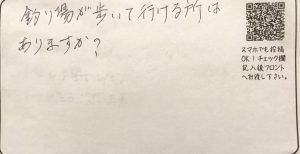 釣り場が歩いて行ける所は
ありますか?
スマホでも投稿
OK！チェック欄
記入後フロント
へお渡し下さい。